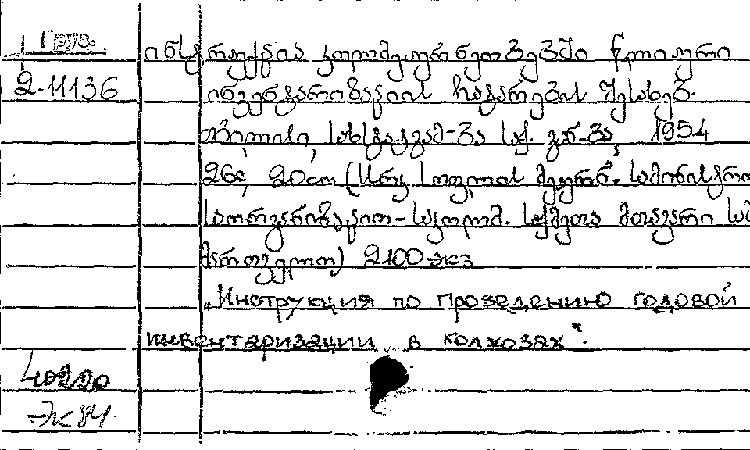 2-11136
ინსტრუქცია კოლმეურნეობებში წლიური
ინვენტარიზაციის ჩატარების შესახებ.
თბილისი, სახსტატგამ-ბა საქ. გან-ბა, 1954
26გ, 20სმ (სსრკ სოფლის მეურნ. სამინისტრო
საორგანიზაციო-საკოლმ. საქმეთა მთავარი სამ
მართველო) 2100 ეკზ
„Инструкция по проведению годовой
инвентаризации в колхозах".